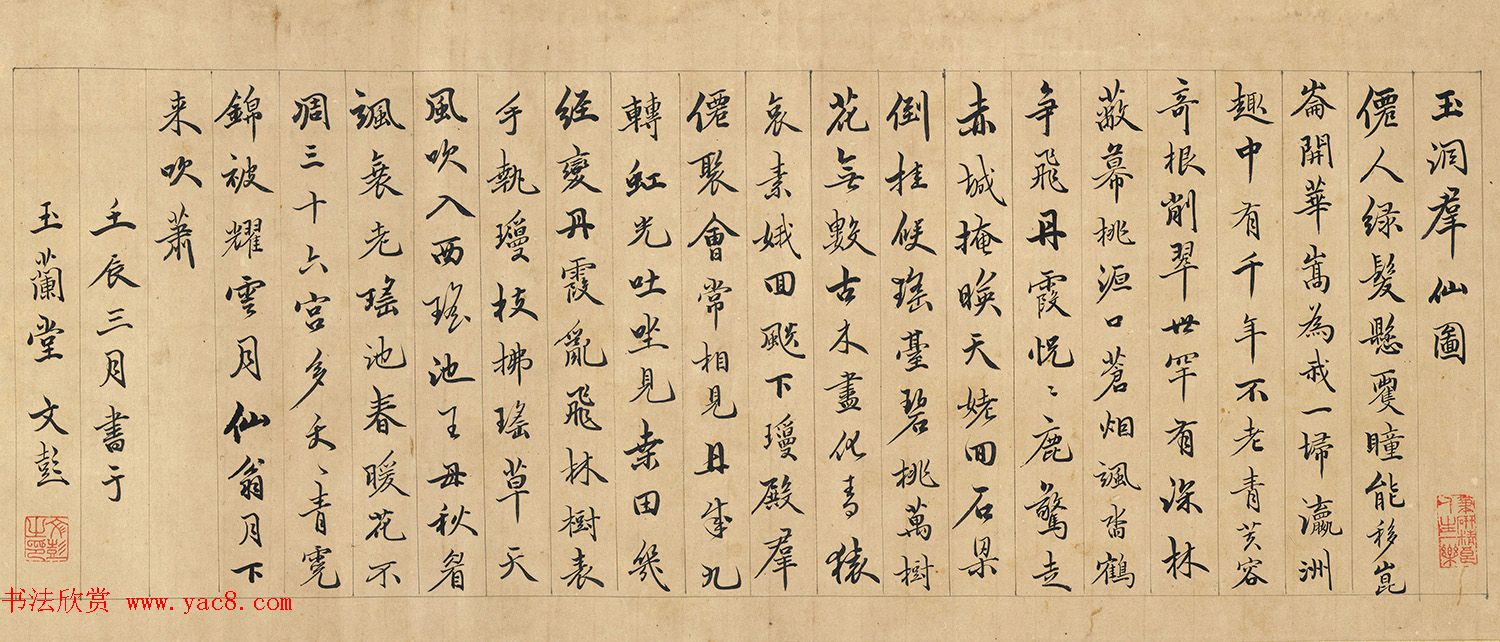 玉洞羣仙圖
僊人绿髮懸雙瞳能移崑
崙開華嵩為我一掃瀛洲
趣中有千年不老青芙容
奇根削翠世罕有深林
蔽幕桃源口蒼烟颯沓鶴
争飛丹霞恍〻鹿驚走
赤城掩暎天姥回石梁
倒挂候瑤臺碧桃萬樹
花無數古木盡化青猿
哀素娥回飈下瓊殿羣
僊聚會常相見日成九
轉虹光吐坐見桑田幾
經變丹霞亂飛林樹表
手執瓊枝拂瑤草天
風吹入西瑤池王母秋眉
颯衰老瑤池春暖花不
凋三十六宮多夭〻青霓
錦被耀雲月仙翁月下
来吹蕭
壬辰三月書于
玉蘭堂 文彭
筆研精良人生一樂
文彭之印
书法欣赏 www.yac8.com